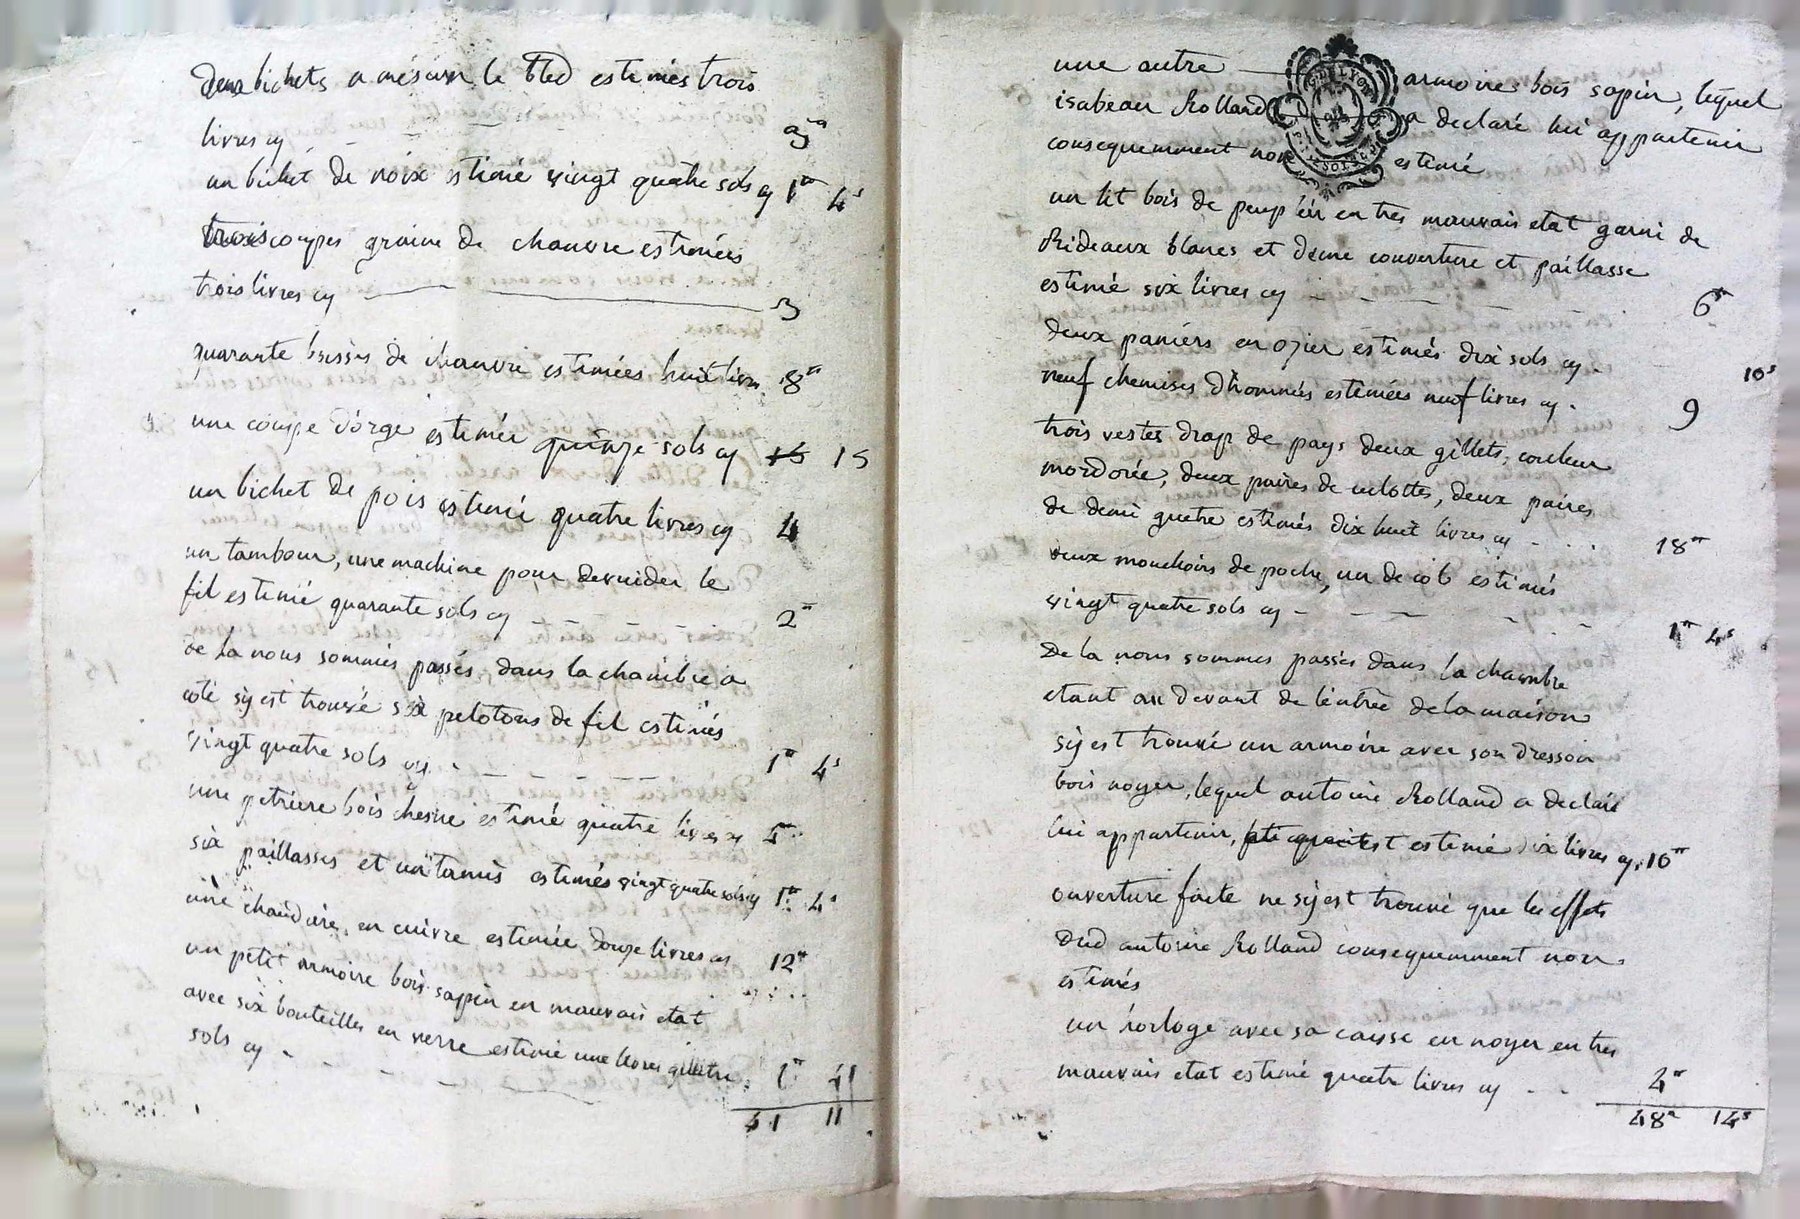 deux bichets a mésurer le bled estimés trois
livres cy 3
un bichet de noix estimé vingt quatre sols cy 1 4s
trois coupes graine de chanvre estimées
trois livres cy 3
quarante bresses de chanvre estimées huit livres 8
une coupe d'orge estimée quinze sols cy 15 15
un bichet de pois estimé quatre livres cy 4
un tambour, une machine pour devuider le
fil estimé quarante sols cy 2
de la nous sommes passés dans la chambre a
coté sy est trouvé six pelotons de fil estimés
vingt quatre sols cy 1 4s
une petriere bois chesne estimé quatre livres cy 4
six paillasses et un tamis estimés vingt quatre sols cy 1 4s
une chaudiere en cuivre estimée douze livres cy 12
un petit armoire bois sapin en mauvais etat
avec six bouteilles en verre estimé une livres quatre
sols cy 1 4
41 11
une autre armoire bois sapin, lequel
isabeau Rolland a declaré lui appartenir
consequemment non estimé
un lit bois de peuplier en tres mauvais etat garni de
Rideaux blancs et d'une couverture et paillasse
estimé six livres cy 6
deux paniers en ozier estimés dix sols cy 10s
neuf chemises d'hommes estimées neuf livres cy 9
trois vestes drap de pays deux gillets, couleur
mordorée, deux paires de culottes, deux paires
de demi guetre estimés dix huit livres cy 18
deux mouchoirs de poche, un de col estimés
vingt quatre sols cy 1 4s
De la nous sommes passés dans la chambre
etant au devant de lentrée de la maison
sy est trouvé un armoire avec son dressoir
bois noyer, lequel antoine Rolland a declaré
lui appartenir, estimé dix livres cy 10
ouverture faite ne sy est trouvé que les effets
dud antoine Rolland consequemment non
estimés
un horloge avec sa caisse en noyer en tres
mauvais etat estimé quatre livres cy 4
48 14s